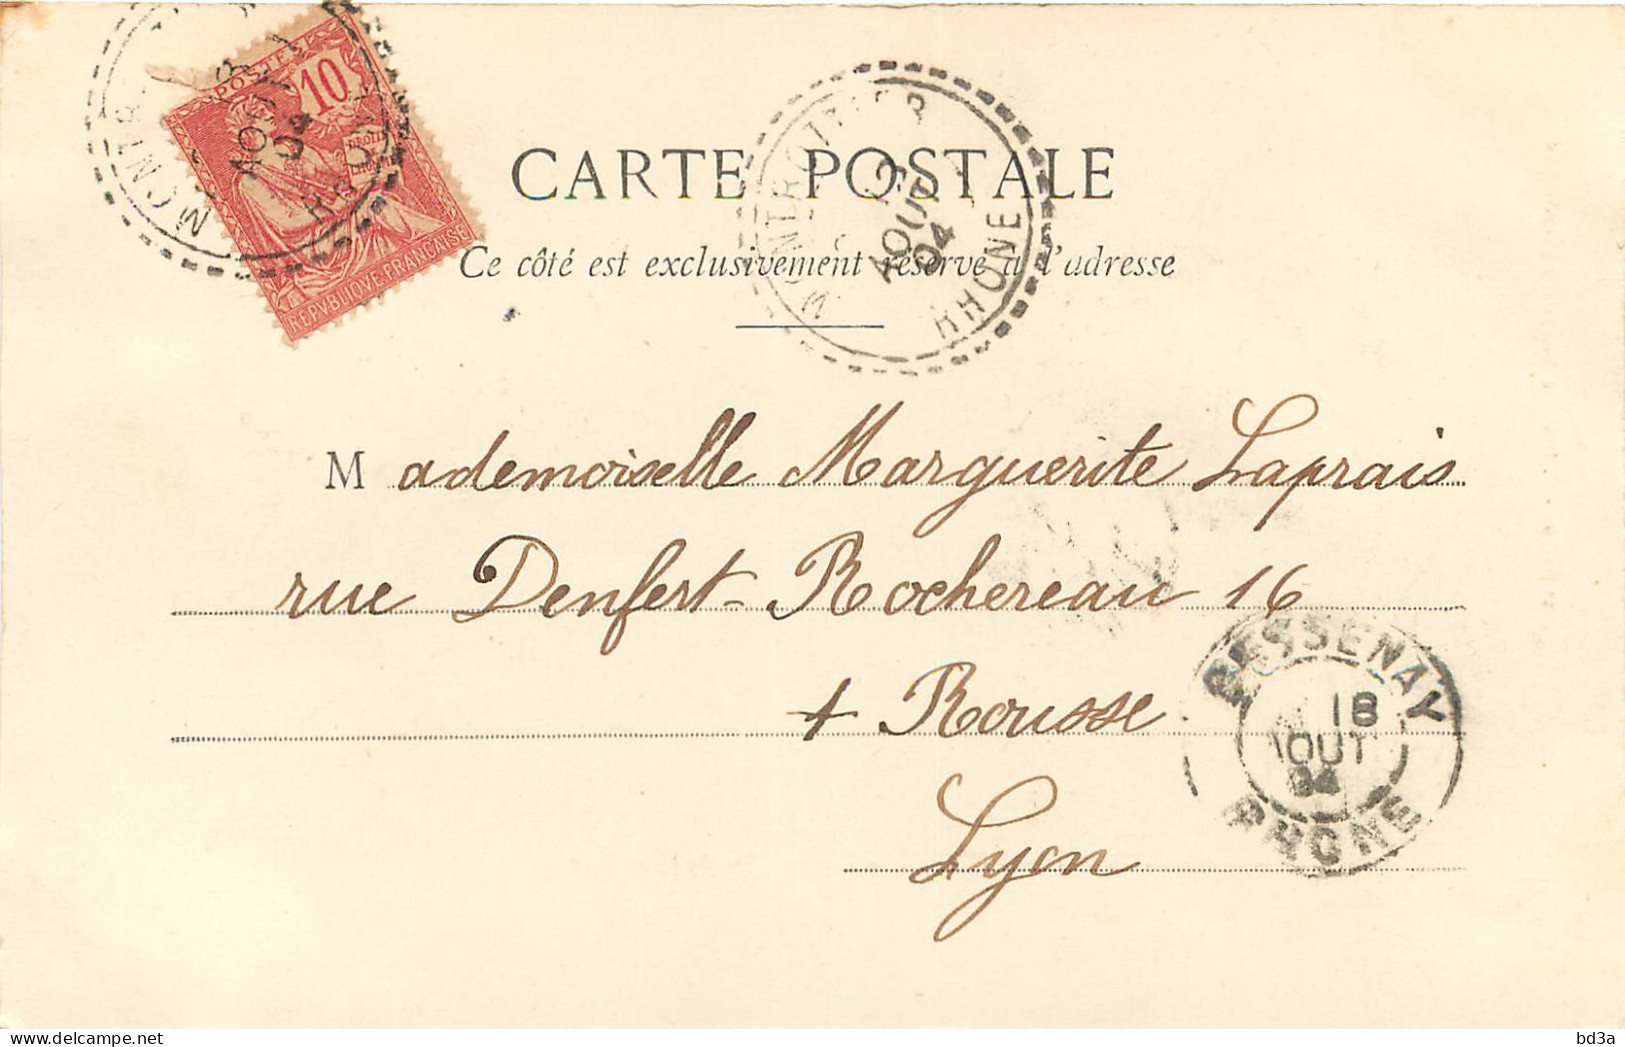 POSTES
10
DROITS
DE L'HOMME
REPVBLIQVE FRANÇAISE
AOUT
04
CARTE POSTALE
Ce côté est exclusivement réservé à l'adresse
MONTROTTIER
AOUT
04
RHONE
Mademoiselle Marguerite Laprais
rue Denfert-Rochereau 16
+ Rousse
Lyon
BESSENAY
18
AOUT
04
RHONE
bd3a